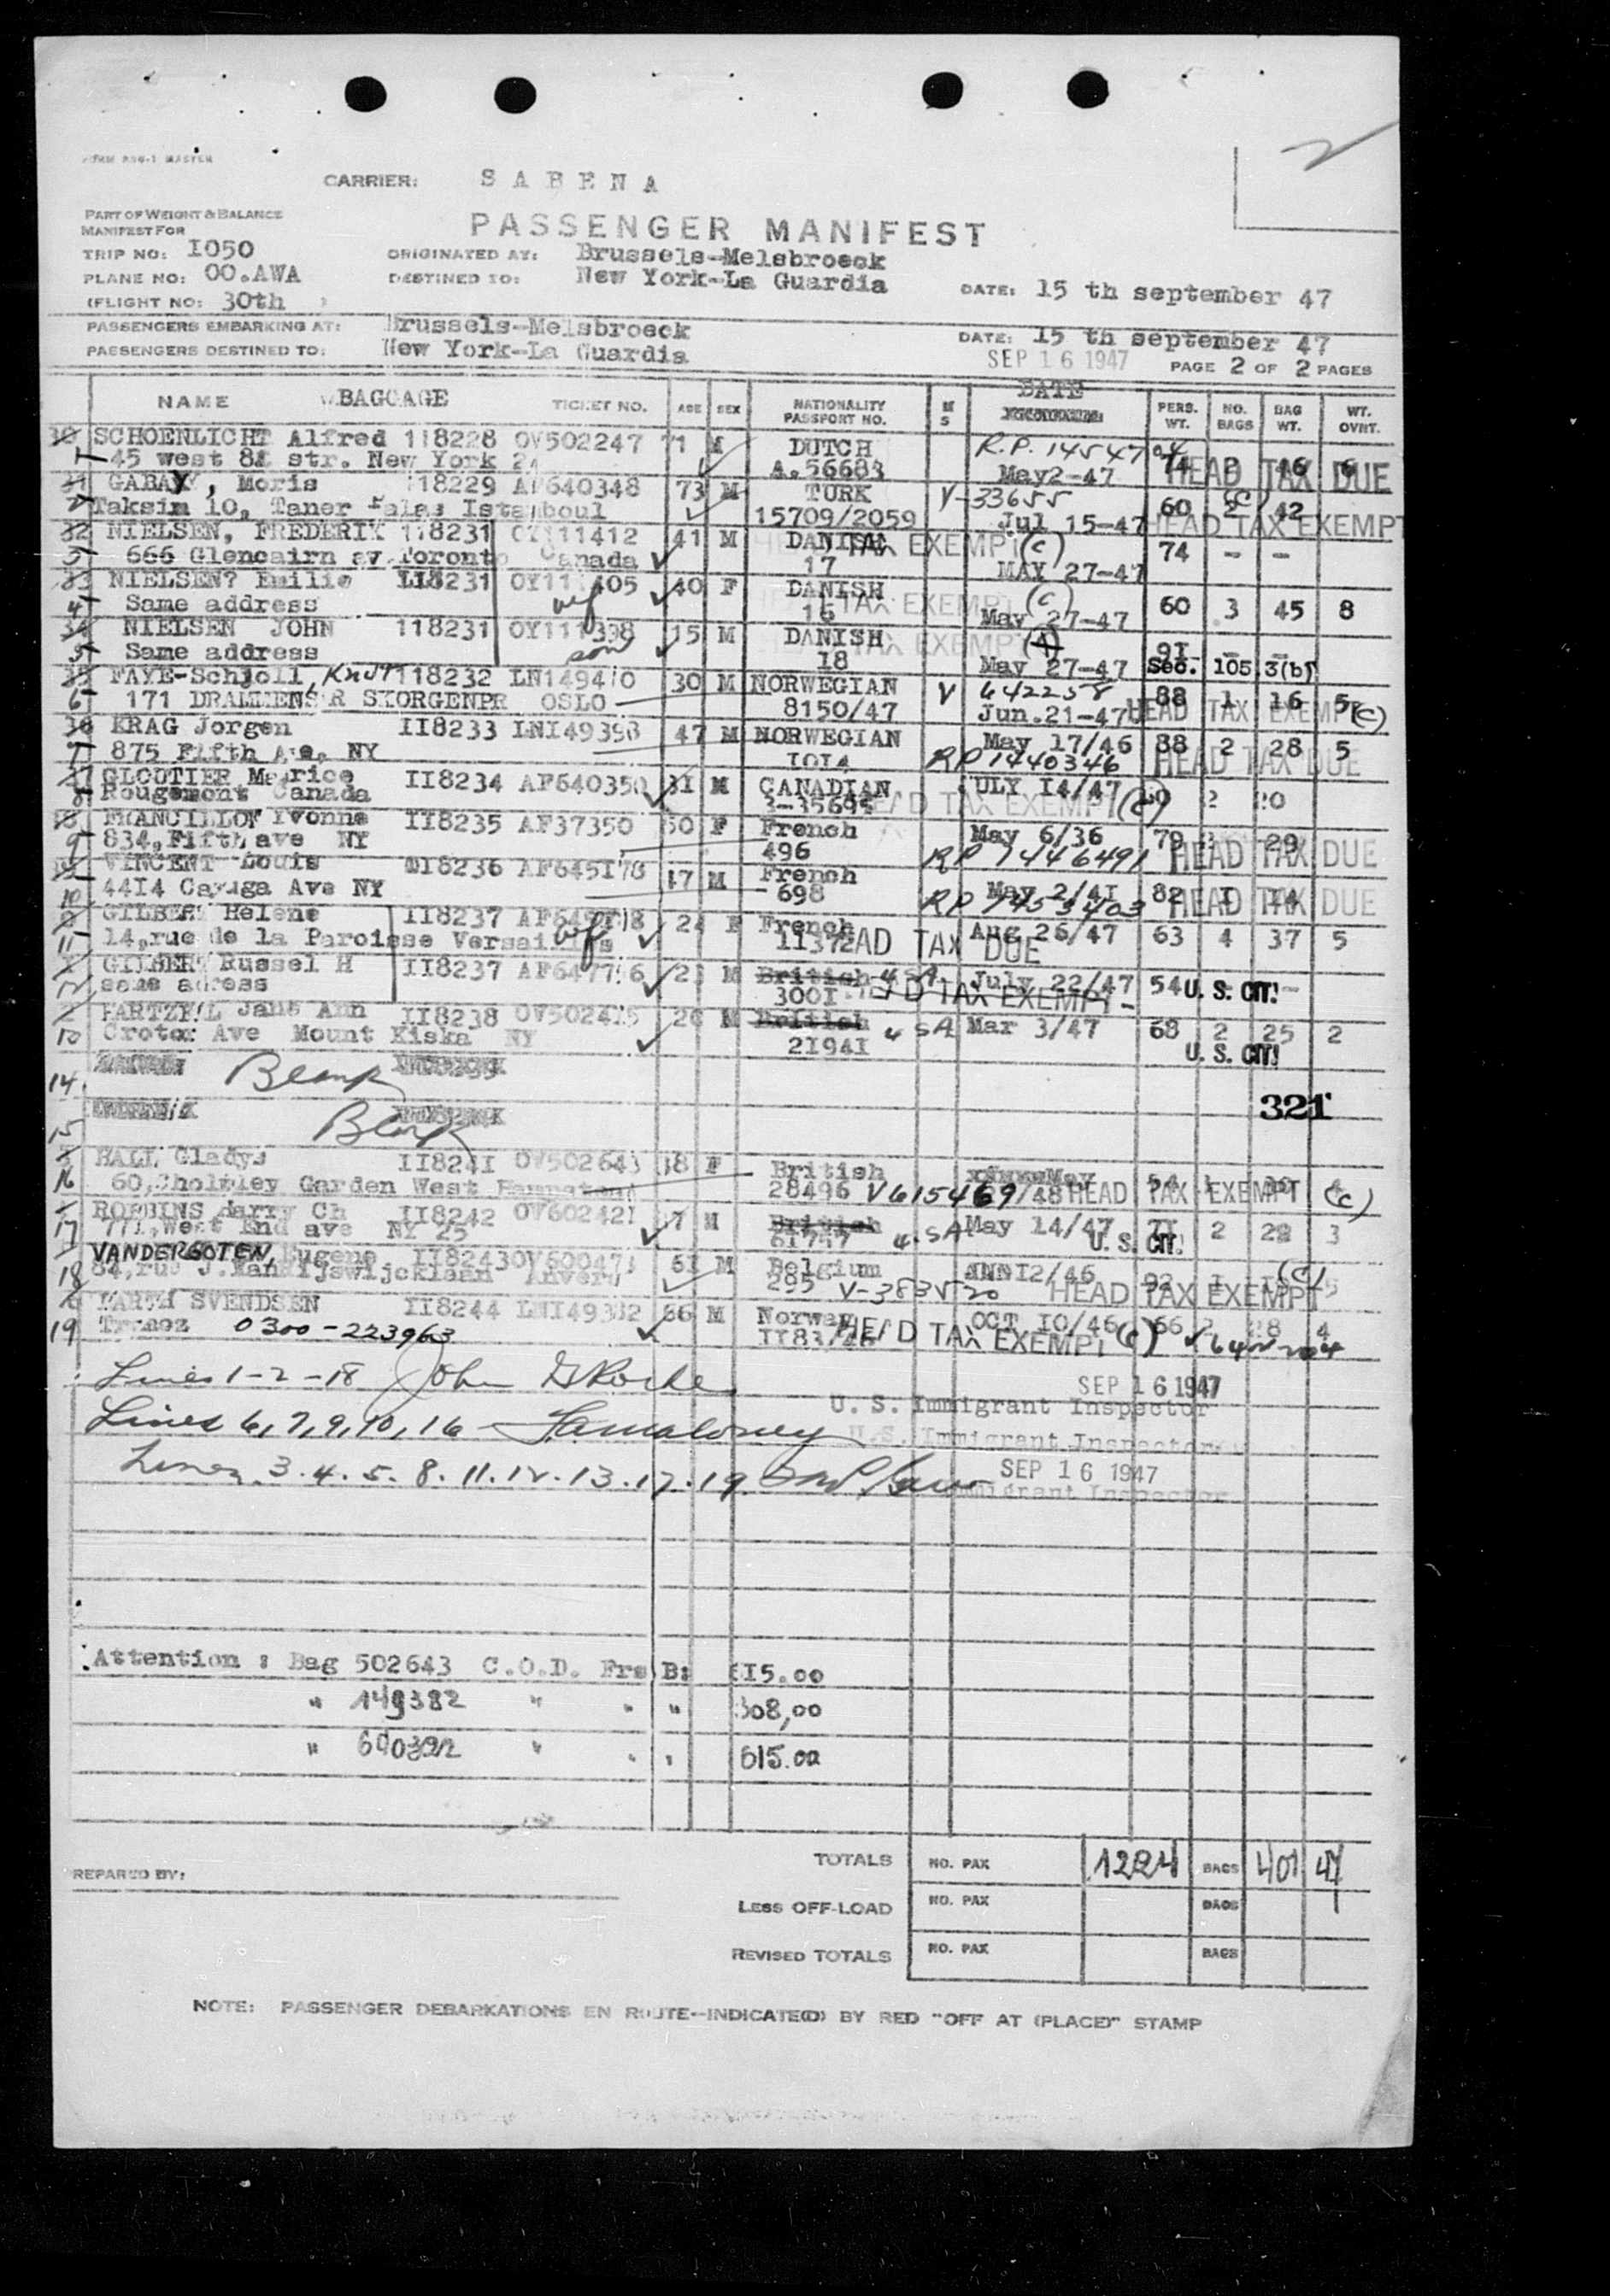 FORM
CARRIER: SABENA
PART OF WEIGHT & BALANCE
MANIFEST FOR
PASSENGER MANIFEST
TRIP NO: I050
ORIGINATED AT: Brussels-Melsbroeck
PLANE NO: OO.AWA
DESTINED TO: New York-La Guardia
DATE: 15 th september 47
(FLIGHT NO: 30th )
PASSENGERS EMBARKING AT: Brussels-Melsbroeck
DATE: 15 th september 47
PASSENGERS DESTINED TO: New York-La Guardia
SEP 16 1947
PAGE 2 OF 2 PAGES
NAME BAGGAGE TICKET NO. AGE SEX NATIONALITY PASSPORT NO. M S DATE PERS. WT. NO. BAGS BAG WT. WT. OVRT.
SCHOENLICHT Alfred 118228 OV502247 71 M DUTCH R.P. 14547
1 45 west 81 str. New York 24 A.56683 May2-47 74 2 46 6 HEAD TAX DUE
GABAY, Moris 118229 AF640348 73 M TURK V-33655 60 2 42 (C)
2 Taksim 10, Taner Palas Istamboul 15709/2059 Jul 15-47 HEAD TAX EXEMPT
32 NIELSEN, FREDERIK 118231 OY111412 41 M DANISH HEAD TAX EXEMPT (C) 74 - -
3 666 Glencairn av Toronto Canada 17 MAY 27-47
33 NIELSEN? Emilie 118231 OY111405 40 F DANISH (C) 60 3 45 8
4 Same address wf 16 TAX EXEMPT May 27-47
34 NIELSEN JOHN 118231 OY111398 15 M DANISH TAX EXEMPT 91 - -
5 Same address son 18 May 27-47 Sec. 105.3(b)
35 FAYE-Schjoll, Knut 118232 LN149410 30 M NORWEGIAN V 642258 88 1 16 5
6 171 DRAMMENS R SKORGENPR OSLO 8150/47 Jun.21-47 HEAD TAX EXEMPT (C)
36 KRAG Jorgen II8233 LNI49398 47 M NORWEGIAN May 17/46 88 2 28 5
7 875 Fifth Ave, NY IOI4 RP 1440346 HEAD TAX DUE
GLOUTIER Maurice II8234 AF640350 31 M CANADIAN JULY I4/47 2 20
8 Rougemont Canada 3-35695 HEAD TAX EXEMPT (C)
FRANCILLON Yvonne II8235 AF37350 50 F French May 6/36 79 29
9 834, Fifth ave NY 496 RP 1446491 HEAD TAX DUE
VINCENT Louis II8236 AF645I78 17 M French May 2/4I 82 I I4
10 44I4 Cayuga Ave NY 698 RP 1453403 HEAD TAX DUE
GILBERT Helene II8237 wf F French Aug 26/47 63 4 37 5
11 I4,rue de la Paroisse Versailles II372 HEAD TAX DUE
GILBERT Russel H II8237 M British USA July 22/47 54 U. S. CIT! -
12 same adress 300I HEAD TAX EXEMPT -
HARTZELL Jane Ann II8238 OV502415 26 M British USA Mar 3/47 68 2 25 2
13 Croton Ave Mount Kiska NY 2I94I U. S. CIT!
14 Blank
321
15 Blank
HALL Gladys II824I OV502643 38 F British May
16 60, Cholmley Garden West 28496 V615469 /48 HEAD TAX EXEMPT (C)
ROBBINS Harry Ch II8242 OV602421 M British USA May I4/47 7I 2 28 3
17 771, West End ave NY 25 61747 U. S. CIT!
VANDERGOTEN, Eugene II8243 OV600471 61 M Belgium JUN I2/46 92 (C) 5
18 84, rue J. Anvers 295 V-383520 HEAD TAX EXEMPT
SVENDSEN II8244 LNI49382 66 M Norway OCT IO/46 66 2 28 4
19 0300-223963 II83/46 HEAD TAX EXEMPT (C)
Lines 1-2-18 John
SEP 16 1947
U. S. Immigrant Inspector
Lines 6,7,9,10,16
U. S. Immigrant Inspector
Lines 3.4.5.8.11.12.13.17.19
SEP 16 1947
Immigrant Inspector
Attention : Bag 502643 C.O.D. Frs B: 615.00
" 149382 " " " 308,00
" 600392 " " " 615.00
TOTALS NO. PAX 1224 BAGS 401 47
REPARED BY:
LESS OFF-LOAD NO. PAX BAGS
REVISED TOTALS NO. PAX BAGS
NOTE: PASSENGER DEBARKATIONS EN ROUTE-INDICATE(D) BY RED "OFF AT (PLACE)" STAMP